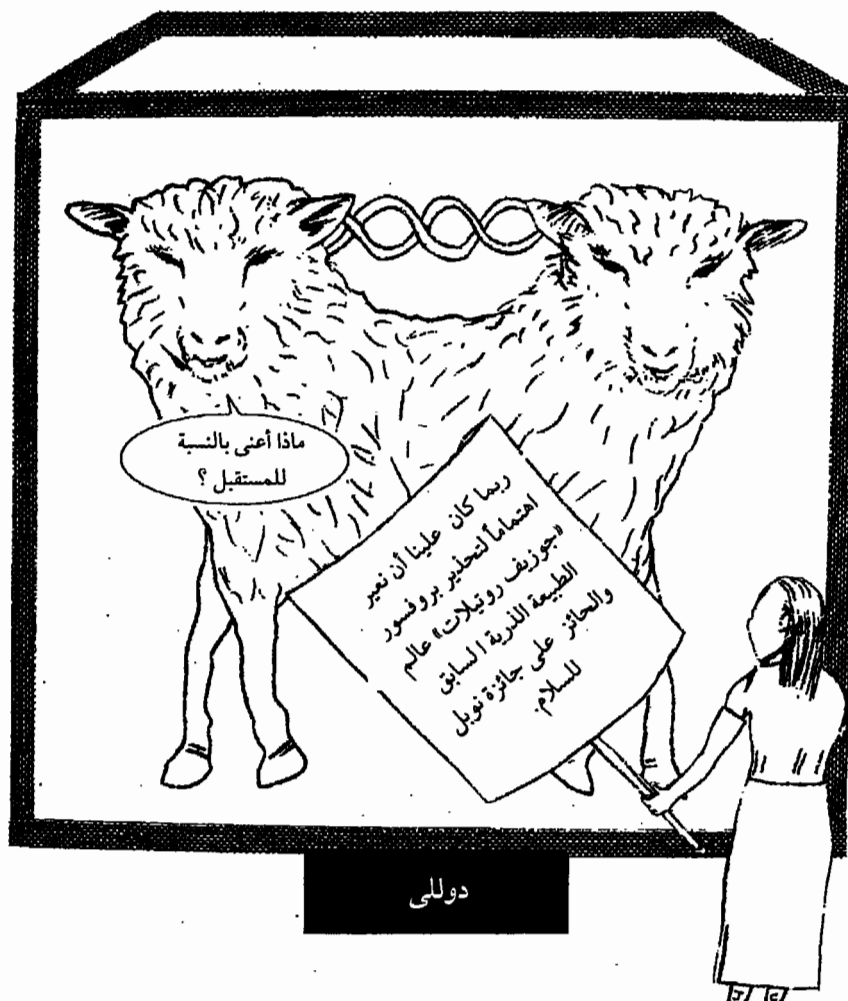 ماذا أعنى بالنسبة
للمستقبل ؟
ربما كان علينا أن نعير
اهتماماً لتحذير بروفسور
«جوزيف روتيلات» عالم
الطبيعة الذرية السابق
والحائز على جائزة نوبل
للسلام.
دوللى
J C